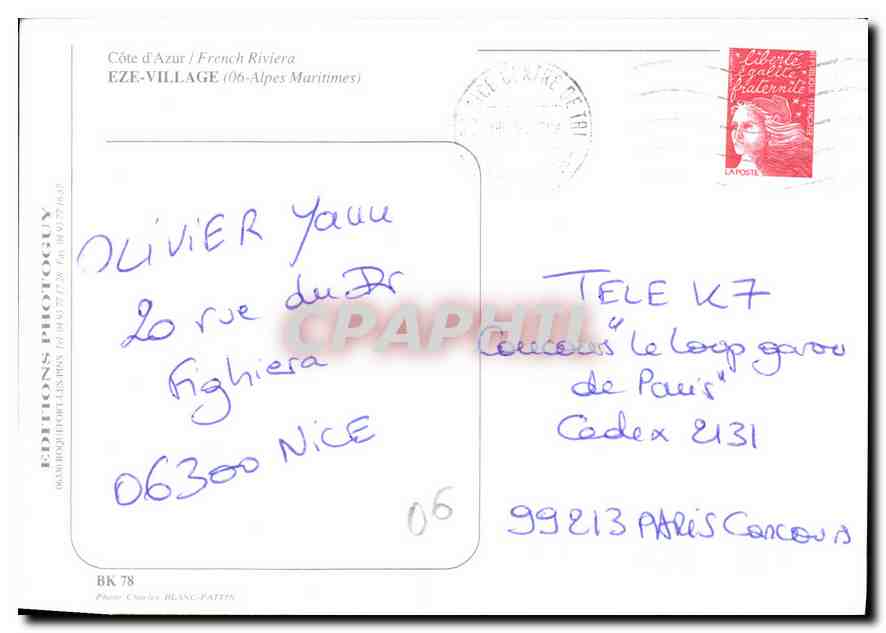 Côte d'Azur / French Riviera
EZE-VILLAGE (06-Alpes Maritimes)
NICE CENTRE DE TRI
liberté
égalité
fraternité
REPUBLIQUE FRANÇAISE
LA POSTE
EDITIONS PHOTOGUY
06330 ROQUEFORT-LES-PINS Tél. 04 93 77 17 28 Fax
OLIVIER Yann
20 rue du Dr
Fighiera
06300 NiCE
06
TELE K7
Concours "Le Loop garou
de Paris"
Cedex 2131
99213 PARIS Concours
CPAPHIL
BK 78
Photo Charles BLANC-PATTIN